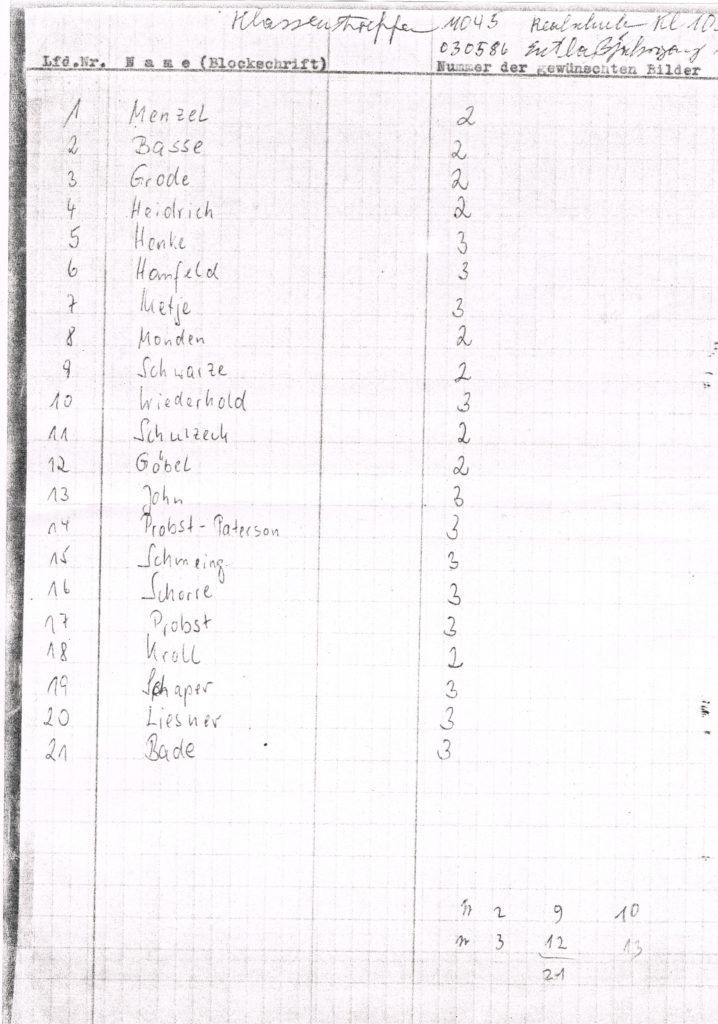 Klassentreffen 11045 Realschule Kl 10
030586 Entlaßjahrgang
Lfd.Nr. N a m e (Blockschrift) Nummer der gewünschten Bilder
1 Menzel 2
2 Basse 2
3 Grode 2
4 Heidrich 2
5 Henke 3
6 Hanfeld 3
7 Metje 3
8 Monden 2
9 Schwarze 2
10 Wiederhold 3
11 Schulzeck 2
12 Göbel 2
13 John 3
14 Probst-Paterson 3
15 Schmeing 3
16 Schorre 3
17 Probst 3
18 Kroll 2
19 Schaper 3
20 Liesner 3
21 Bade 3
N 2 9 10
n 3 12 13
21